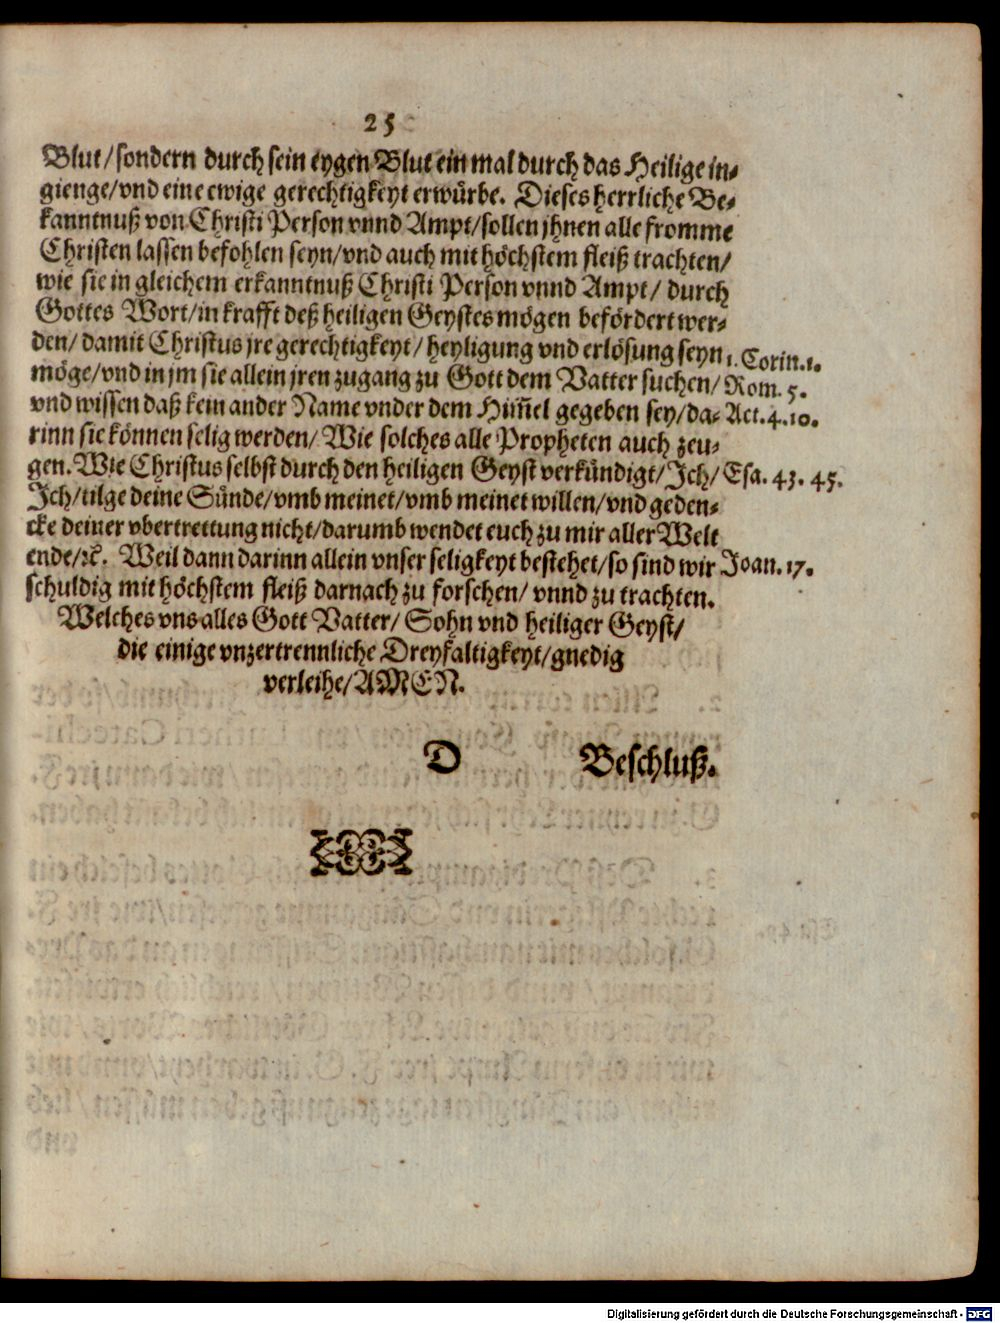 25
Blut/sondern durch sein eygen Blut ein mal durch das Heilige in-
gienge/vnd eine ewige gerechtigkeyt erwürbe. Dieses herrliche Be-
kanntnuß von Christi Person vnnd Ampt/sollen jhnen alle fromme
Christen lassen befohlen seyn/vnd auch mit höchstem fleiß trachten/
wie sie in gleichem erkanntnuß Christi Person vnnd Ampt/ durch
Gottes Wort/in krafft deß heiligen Geystes mögen befördert wer-
den/ damit Christus jre gerechtigkeyt/ heyligung vnd erlösung seyn 1. Corin.1.
möge/vnd in jm sie allein jren zugang zu Gott dem Vatter suchen/ Rom. 5.
vnd wissen daß kein ander Name vnder dem Him̃el gegeben sey/da- Act.4.10.
rinn sie können selig werden/ Wie solches alle Propheten auch zeu-
gen. Wie Christus selbst durch den heiligen Geyst verkündigt/Jch/ Esa. 43. 45.
Jch/tilge deine Sünde/vmb meinet/vmb meinet willen/vnd geden-
cke deiner vbertrettung nicht/darumb wendet euch zu mir aller Welt
ende/ꝛc. Weil dann darinn allein vnser seligkeyt bestehet/so sind wir Joan. 17.
schuldig mit höchstem fleiß darnach zu forschen/ vnnd zu trachten.
Welches vns alles Gott Vatter/ Sohn vnd heiliger Geyst/
die einige vnzertrennliche Dreyfaltigkeyt/gnedig
verleihe/AMEN.
D Beschluß.
Digitalisierung gefördert durch die Deutsche Forschungsgemeinschaft - DFG